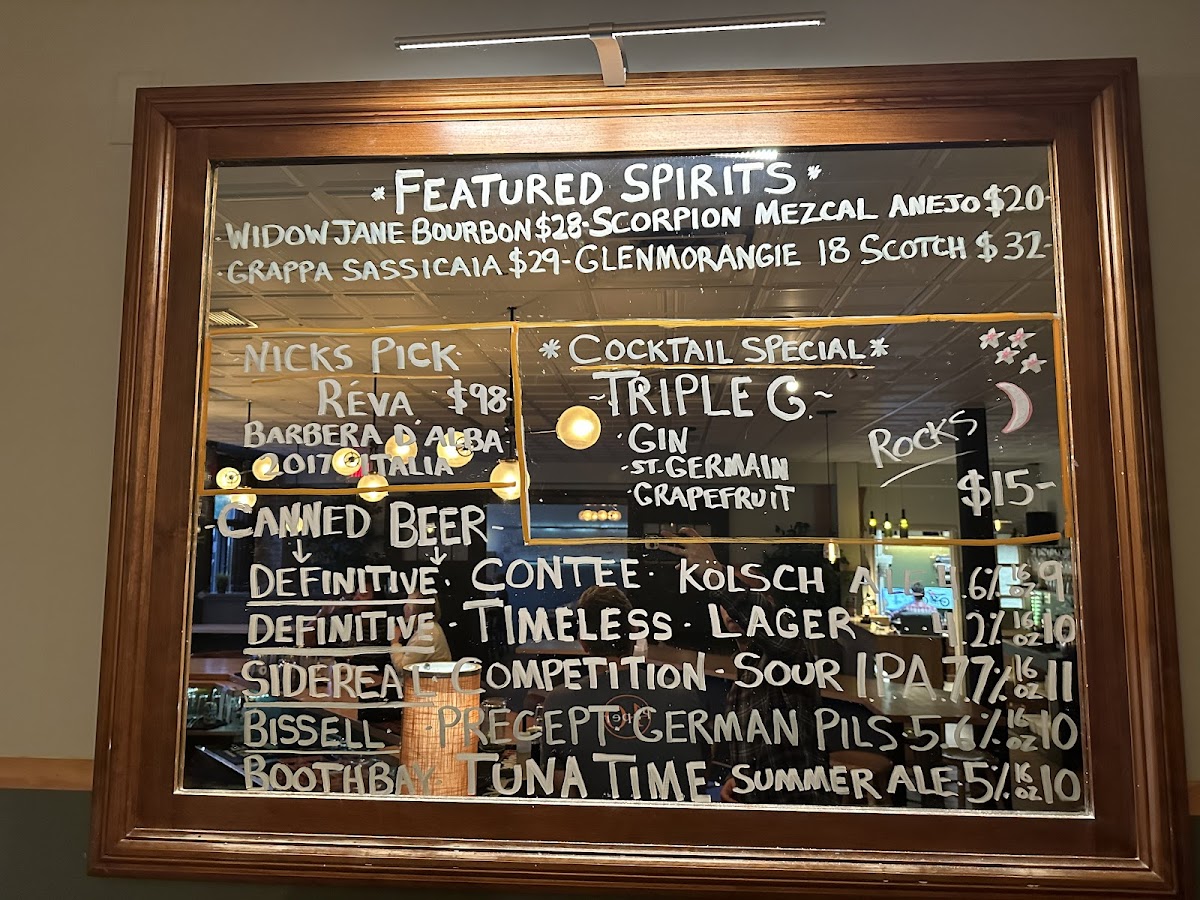 *FEATURED SPIRITS*
·WIDOW JANE BOURBON $28·SCORPION MEZCAL ANEJO $20-
·GRAPPA SASSICAIA $29-GLENMORANGIE 18 SCOTCH $32-
NICKS PICK
RÉVA $98-
BARBERA D'ALBA
2017 ITALIA
*COCKTAIL SPECIAL*
~TRIPLE G.~
·GIN
·ST. GERMAIN
·GRAPEFRUIT
ROCKS
$15-
-CANNED BEER-
↓ ↓
DEFINITIVE· CONTEE· KÖLSCH 4.6% 16 OZ 9
DEFINITIVE·TIMELESS·LAGER 4.2% 16 OZ 10
SIDEREAL COMPETITION·SOUR IPA 7.7% 16 OZ 11
BISSELL· ·PRECEPT·GERMAN PILS·5.6% 16 OZ 10
BOOTHBAY TUNA TIME SUMMER ALE·5% 16 OZ 10